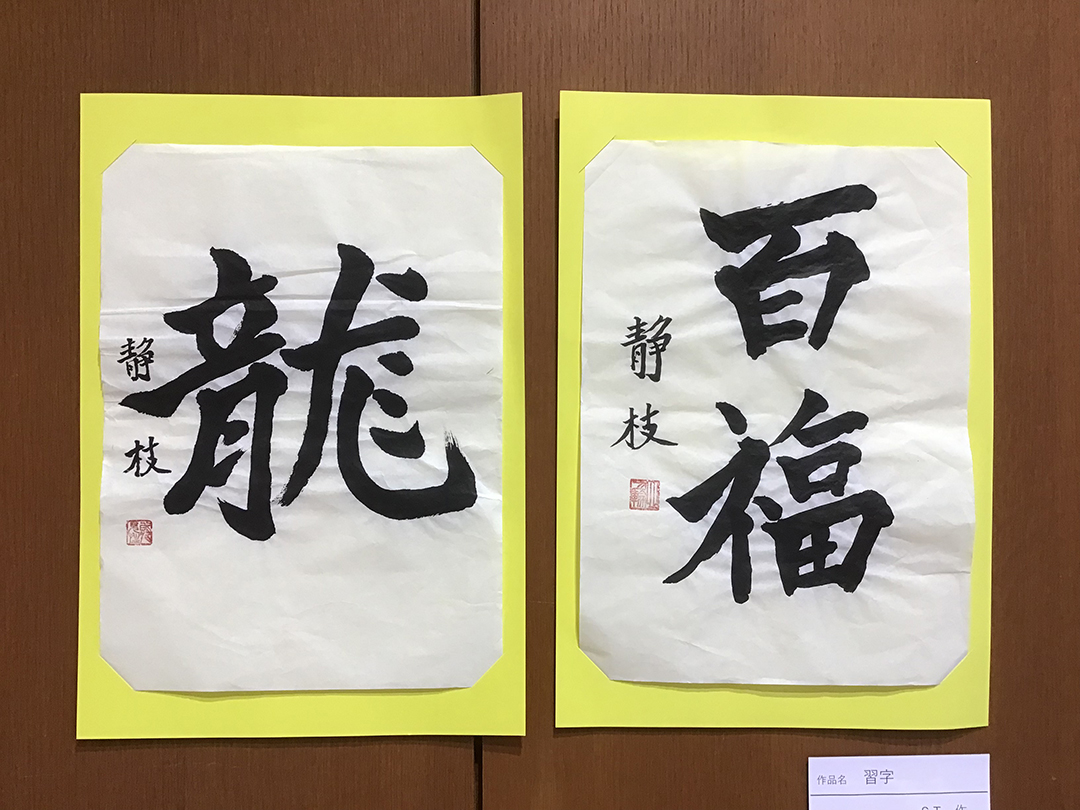 龍
静枝
百福
静枝
作品名 習字
S.T 作